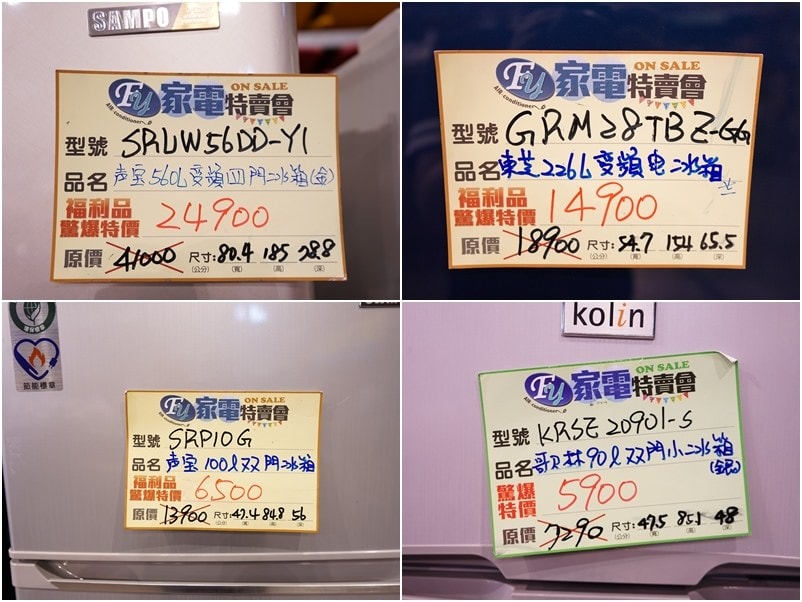 SAMPO
FY 家電特賣會 ON SALE
AIR-conditioner
型號 SRLW56DD-Y1
品名 声宝560L变頻四門冰箱(金)
福利品
驚爆特價 24900
原價 41000 尺寸: 80.4 185 78.8
(公分) (寬) (高) (深)
FY 家電特賣會 ON SALE
AIR-conditioner
型號 GRM28TBZ-GG
品名 東芝226L变頻电冰箱
福利品
驚爆特價 14900
原價 18900 尺寸: 54.7 154 65.5
(公分) (寬) (高) (深)
節能標章
FY 家電特賣會 ON SALE
AIR-conditioner
型號 SRP10G
品名 声宝100l双門冰箱
福利品
驚爆特價 6,500
原價 13900 尺寸: 47.4 84.8 56
(公分) (寬) (高) (深)
kolin
FY 家電特賣會 ON SALE
AIR-conditioner
型號 KRSE 20901-S
品名 歌林90l双門小冰箱
(銀)
驚爆
特價 5900
原價 7290 尺寸: 47.5 85.1 48
(公分) (寬) (高) (深)